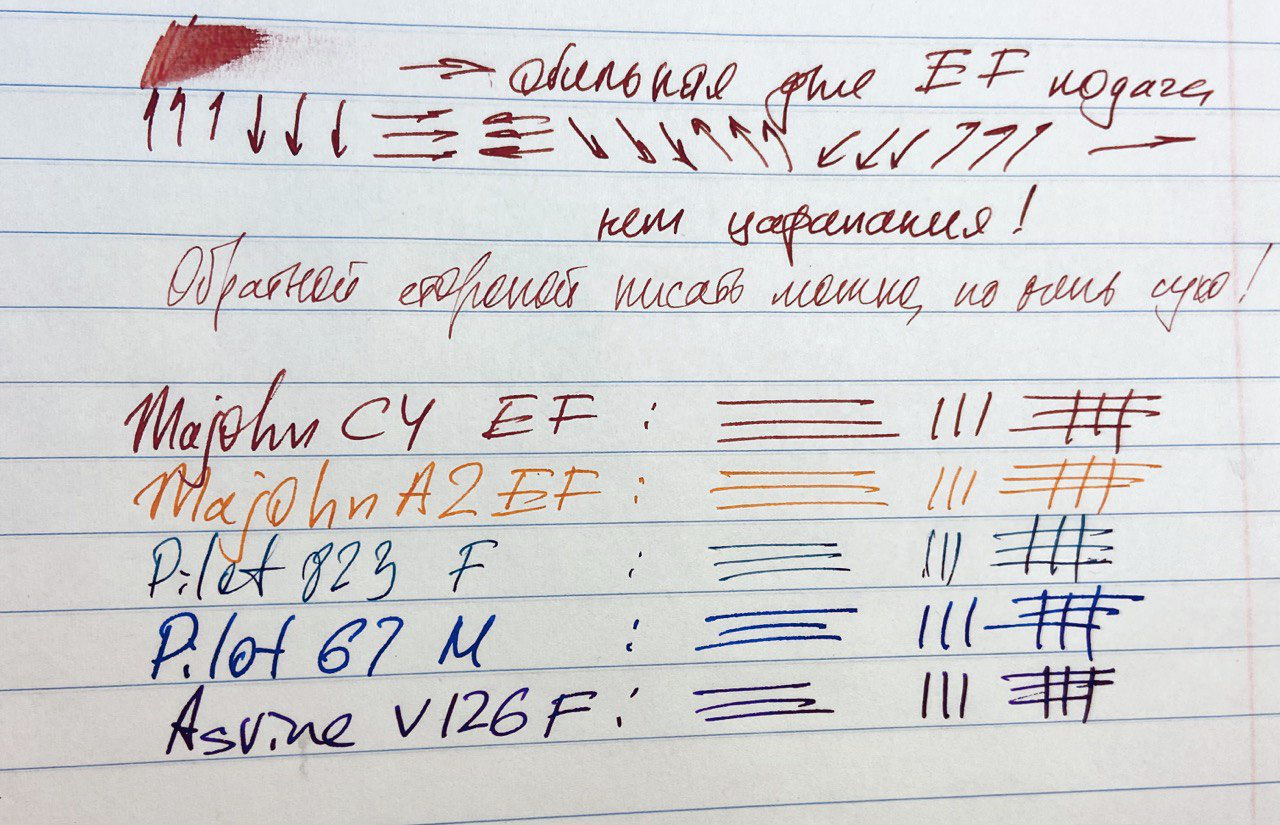 обильная для EF подача
нет царапания!
Обратной стороной писать можно, но очень сухо!
Majohn C4 EF :
Majohn A2 EF :
Pilot 823 F :
Pilot 67 M :
Asvine V126 F :